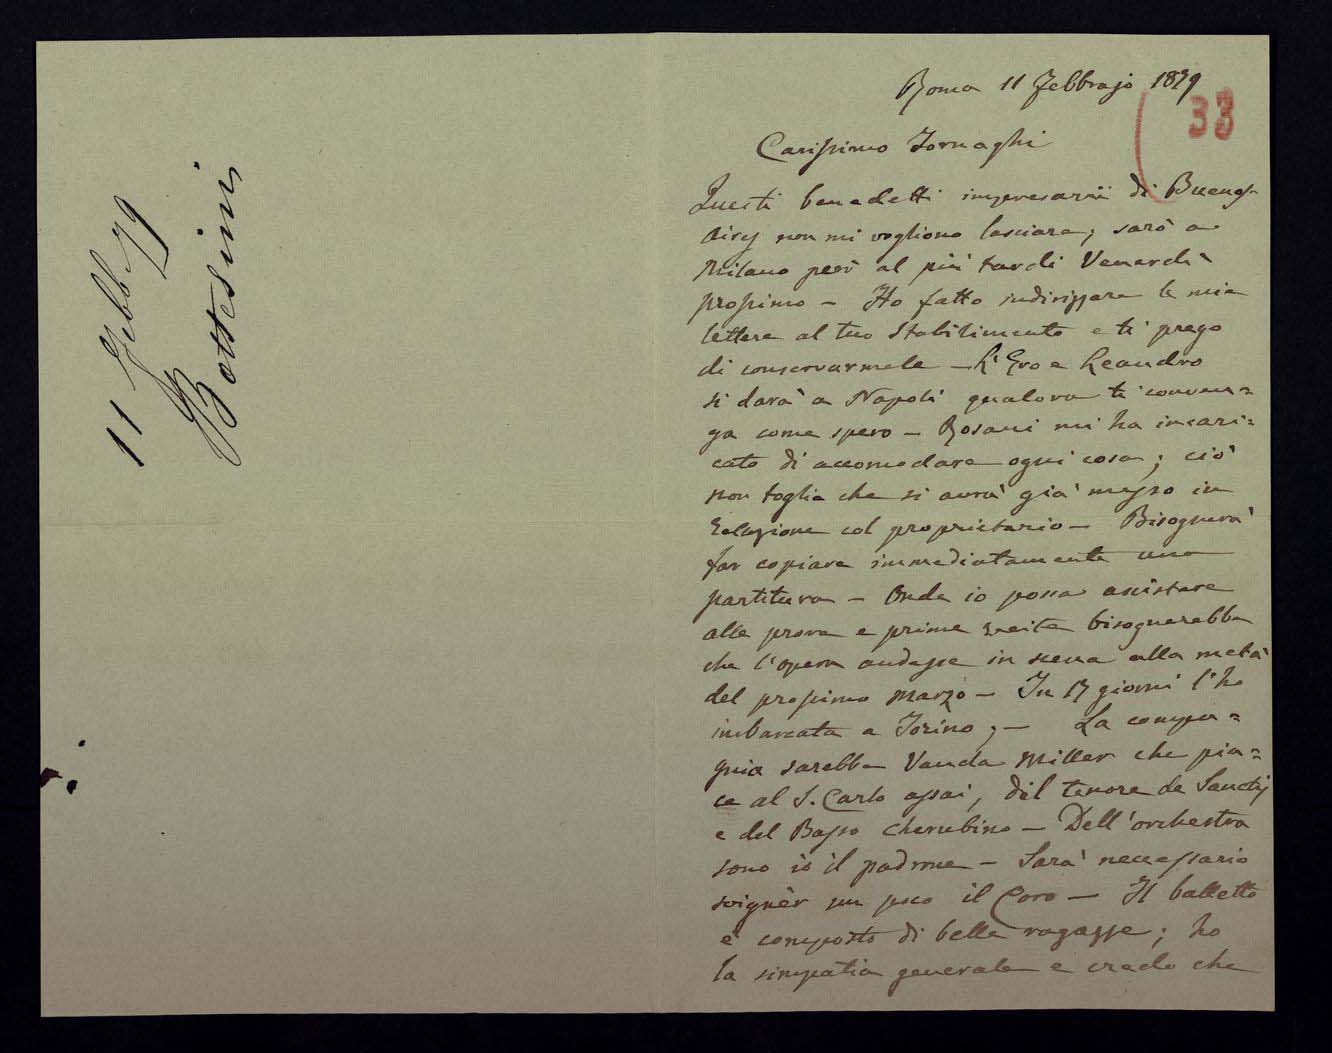 11 Febb. 79
Bottesini
33
Roma 11 Febbrajo 1879
Carissimo Tornaghi
Questi benedetti impresarii di Buenos-
Aires non mi vogliono lasciare, sarò a
Milano però al più tardi Venerdì
prossimo – Ho fatto indirizzare le mie
lettere al tuo Stabilimento e ti prego
di conservarmele – L'Ero e Leandro
si darà a Napoli qualora ti conven=
ga come spero – Rosani mi ha incari=
cato di accomodare ogni cosa; ciò
non toglie che si avrà già messo in
relazione col proprietario – Bisognerà
far copiare immediatamente una
partitura – Onde io possa assistere
alle prove e prime recite bisognerebbe
che l'opera andasse in scena alla metà
del prossimo Marzo – In 17 giorni l'ho
imbarcata a Torino; – La compa=
gnia sarebbe Vanda Miller che pia=
ce al S. Carlo assai, del tenore de Sanctis
e del Basso Cherubino – Dell'orchestra
sono io il padrone – Sarà necessario
soignèr un poco il Coro – Il balletto
è composto di belle ragazze; ho
la simpatia generale e credo che